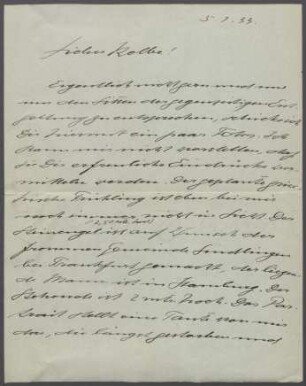 5. 1. 33
Lieber Kolbe!
Eigentlich nicht gern und nur
um den Sitten der gegenseitigen
zu entsprechen, schicke ich
Dir hiermit ein paar Fotos. Ich
kann mir nicht vorstellen, daß
sie Dir erfreuliche Eindrücke ver-
mitteln werden. Der geplante
Frühling ist eben bei mir
noch immer nicht in Sicht. Der
ist auf Wunsch der
frommen Gemeinde Sindlingen
bei Frankfurt gemacht, der liegen-
de Mann ist in Hamburg. Der
ist 2 mtr hoch. Das Por-
trait stellt eine Tante von mir
dar, die längst gestorben und